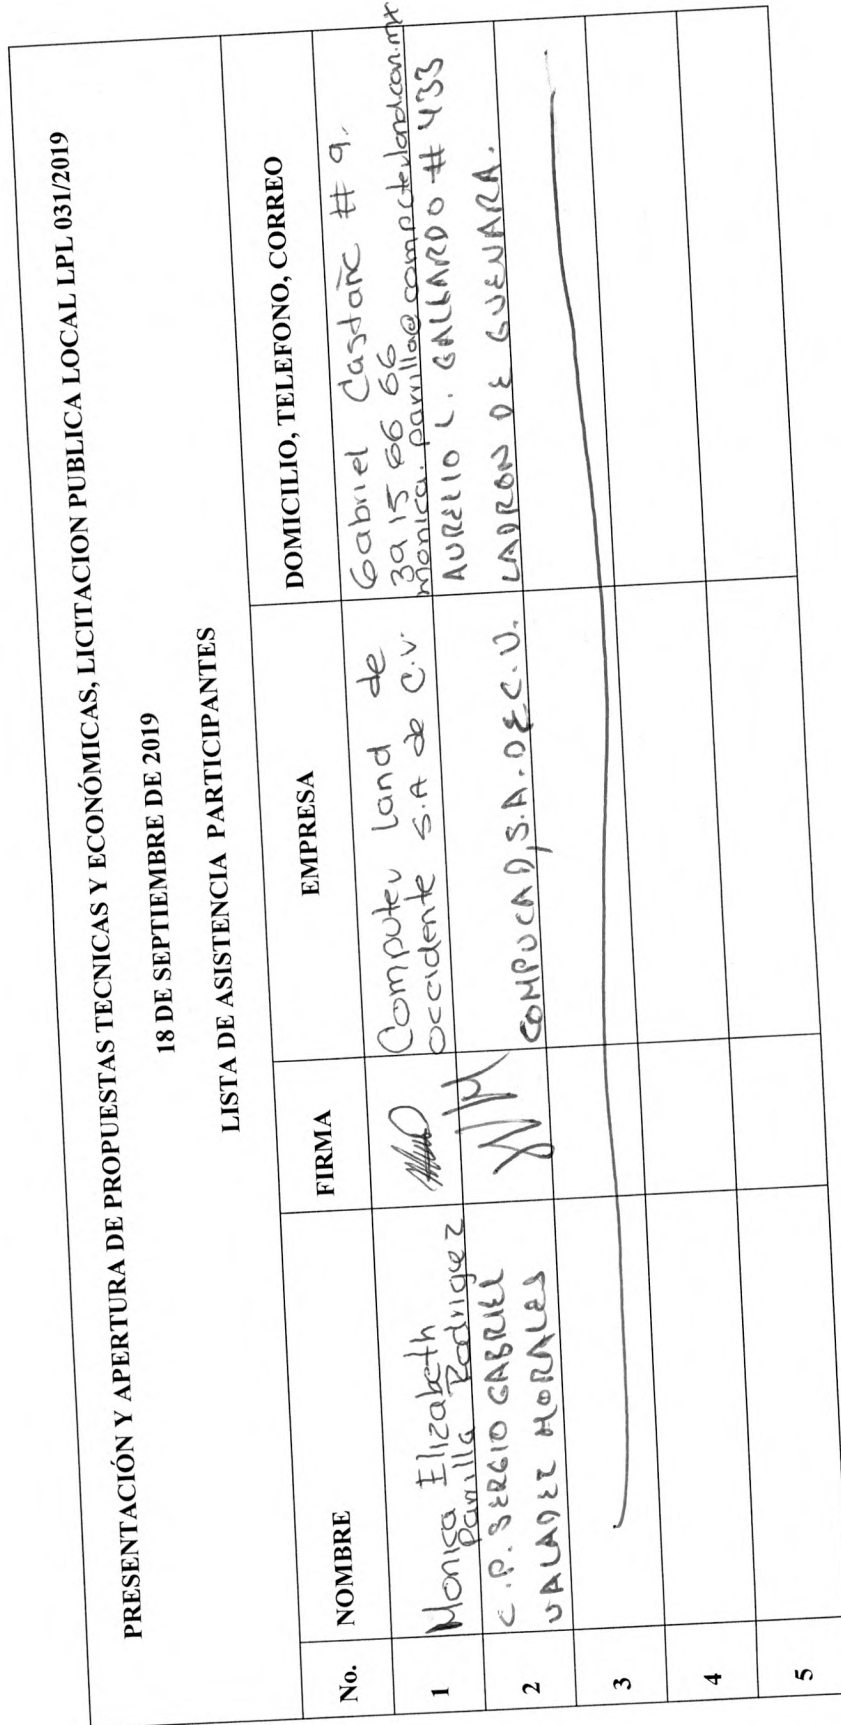 PRESENTACIÓN Y APERTURA DE PROPUESTAS TECNICAS Y ECONÓMICAS, LICITACION PUBLICA LOCAL LPL 031/2019
18 DE SEPTIEMBRE DE 2019
LISTA DE ASISTENCIA PARTICIPANTES
No. NOMBRE FIRMA EMPRESA DOMICILIO, TELEFONO, CORREO
1
Monica Elizabeth
Parrilla Rodriguez
Computer Land de
occidente S.A de C.V.
Gabriel Castañe # 9.
39 15 66 66
2
C.P. SERGIO GABRIEL
VALADEZ MORALES
COMPUCAD, S.A. DE C.V.
AURELIO L. GALLARDO # 433
LADRON DE GUEVARA.
3
4
5